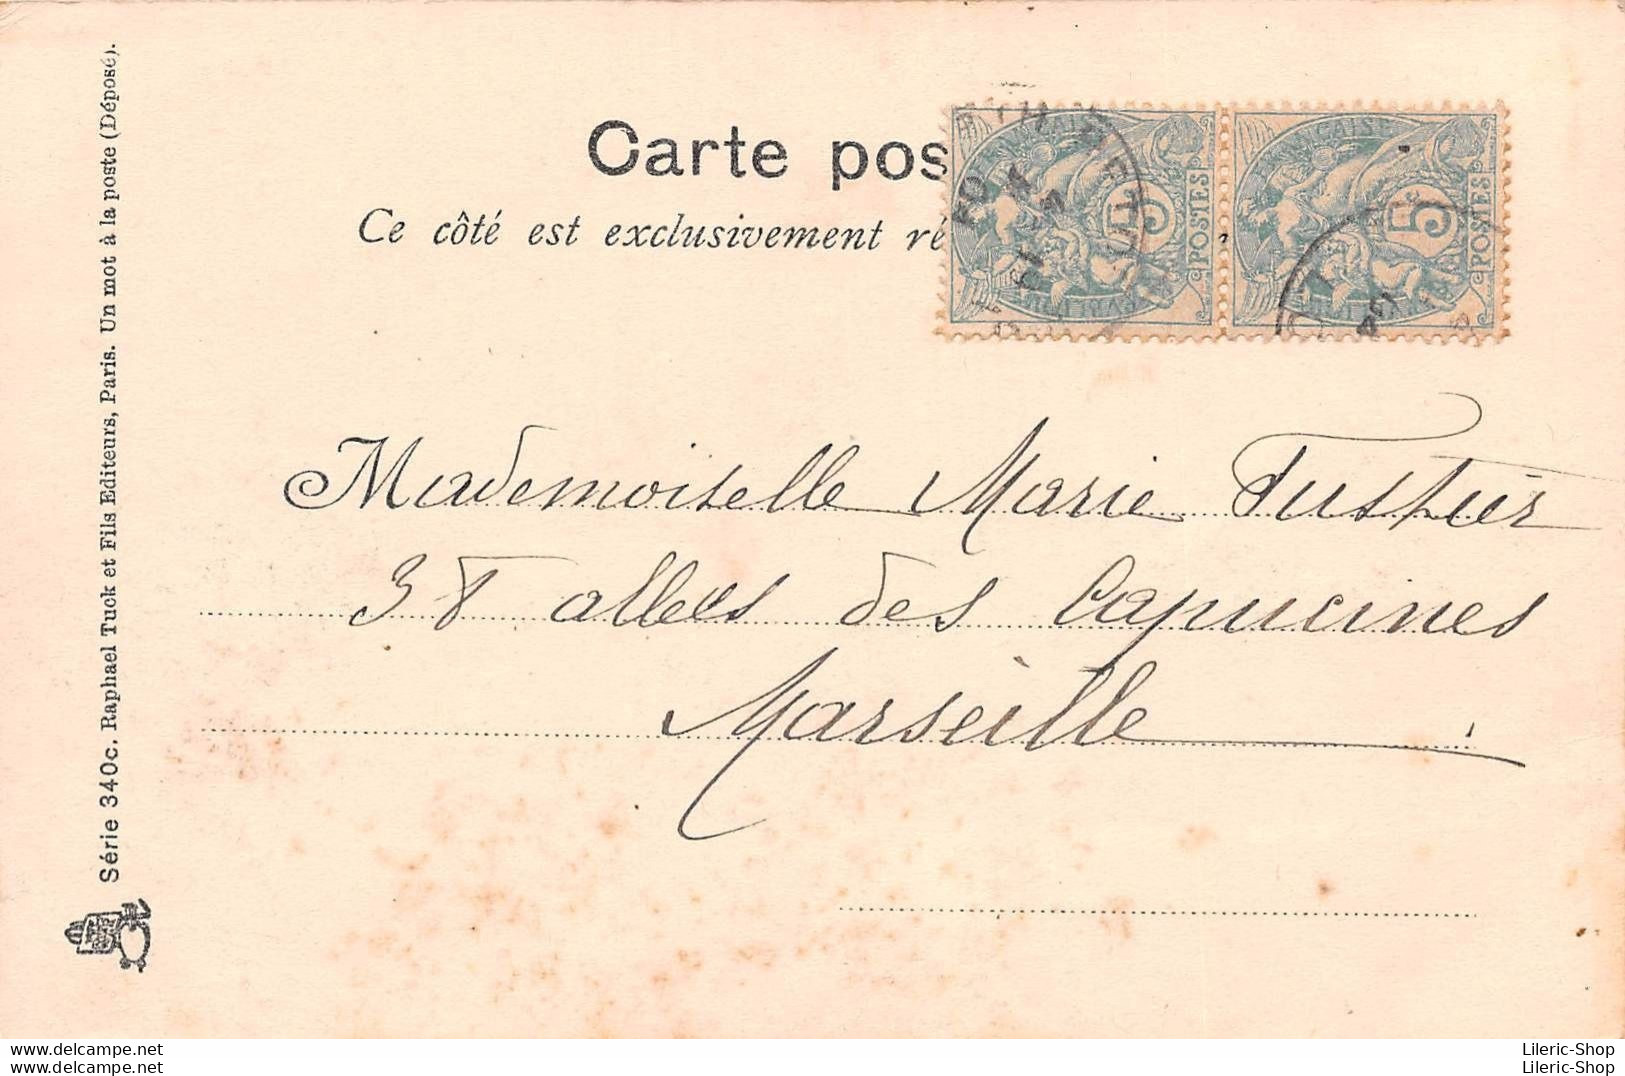 Carte pos
Ce côté est exclusivement ré
FRANÇAISE
5
POSTES
5
POSTES
04
Mademoiselle Marie
38 allees des Capucines
Marseille
Série 340c. Raphael Tuck et Fils Editeurs, Paris. Un mot à la poste (Déposé).
www.delcampe.net
www.delcampe.net
Lileric-Shop
Lileric-Shop